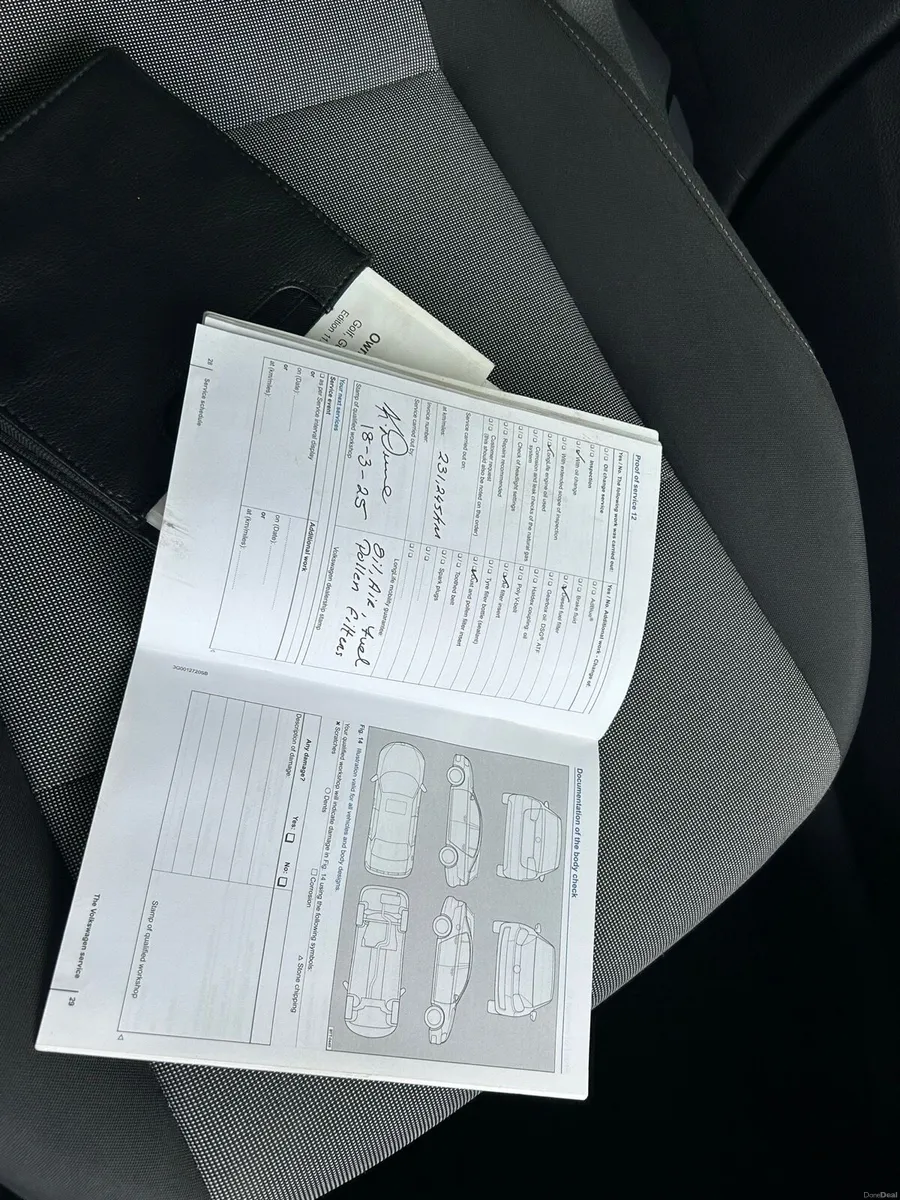 Own
Golf, G
Edition 11
Proof of service 12
Yes / No. The following work was carried out:
Oil change service
Inspection
With oil change
With extended scope of inspection
LongLife engine oil used
Corrosion and leak checks of the natural gas system
Check of headlight settings
Repairs recommended
Customer request
(this should also be noted on the order)
Service carried out on:
at km/miles:
231,245km
Invoice number:
Service carried out by:
K. Dunne
18-3-25
Stamp of qualified workshop
Your next services
Service event
as per Service interval display
or
on (Date):
or
at (km/miles):
28 | Service schedule
Yes / No. Additional work - Change of:
AdBlue®
Brake fluid
Diesel fuel filter
Gearbox oil: DSG®, ATF
Haldex coupling: oil
Poly V-belt
Air filter insert
Tyre filler bottle (sealant)
Dust and pollen filter insert
Toothed belt
Spark plugs
LongLife mobility guarantee:
Oil, Air, Fuel
Pollen Filters
Volkswagen dealership stamp
Additional work
on (Date):
or
at (km/miles):
3G0012720SB
Documentation of the body check
Fig. 14 Illustration valid for all vehicles and body designs.
Your qualified workshop will indicate damage in Fig. 14 using the following symbols:
× Scratches
○ Dents
□ Corrosion
△ Stone chipping
Any damage?
Yes: □
No: □
Description of damage:
Stamp of qualified workshop
The Volkswagen service | 29
DoneDeal